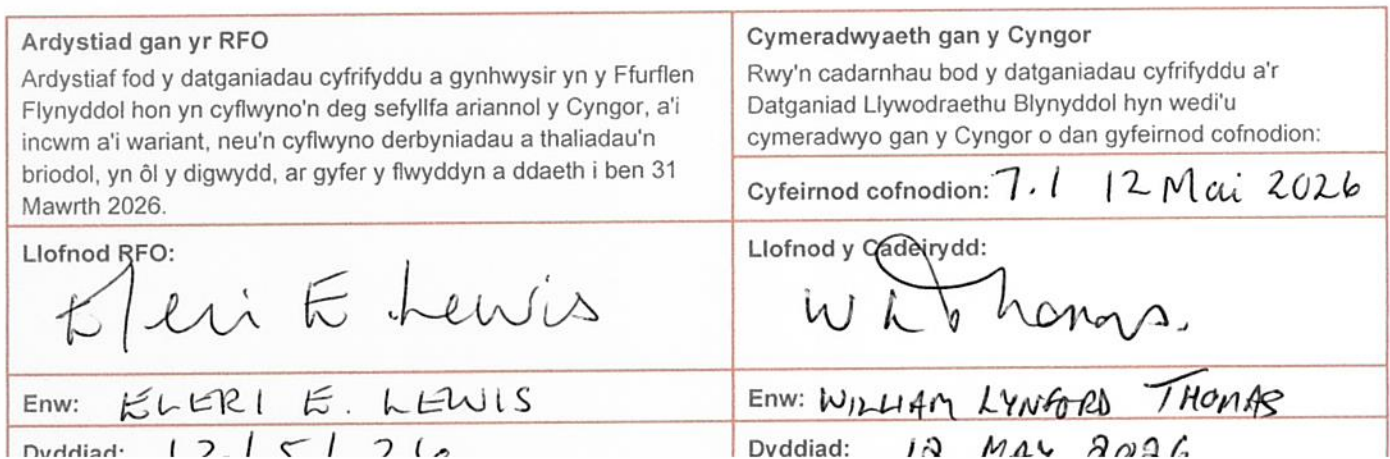 Ardystiad gan yr RFO
Ardystiaf fod y datganiadau cyfrifyddu a gynhwysir yn y Ffurflen
Flynyddol hon yn cyflwyno'n deg sefyllfa ariannol y Cyngor, a'i
incwm a'i wariant, neu'n cyflwyno derbyniadau a thaliadau'n
briodol, yn ôl y digwydd, ar gyfer y flwyddyn a ddaeth i ben 31
Mawrth 2026.
Llofnod RFO:
Eleri E Lewis
Enw: ELERI E. LEWIS
Dyddiad: 12/5/26
Cymeradwyaeth gan y Cyngor
Rwy'n cadarnhau bod y datganiadau cyfrifyddu a'r
Datganiad Llywodraethu Blynyddol hyn wedi'u
cymeradwyo gan y Cyngor o dan gyfeirnod cofnodion:
Cyfeirnod cofnodion: 7.1 12 Mai 2026
Llofnod y Cadeirydd:
W L Thomas.
Enw: WILLIAM LYNFORD THOMAS
Dyddiad: 12 MAY 2026